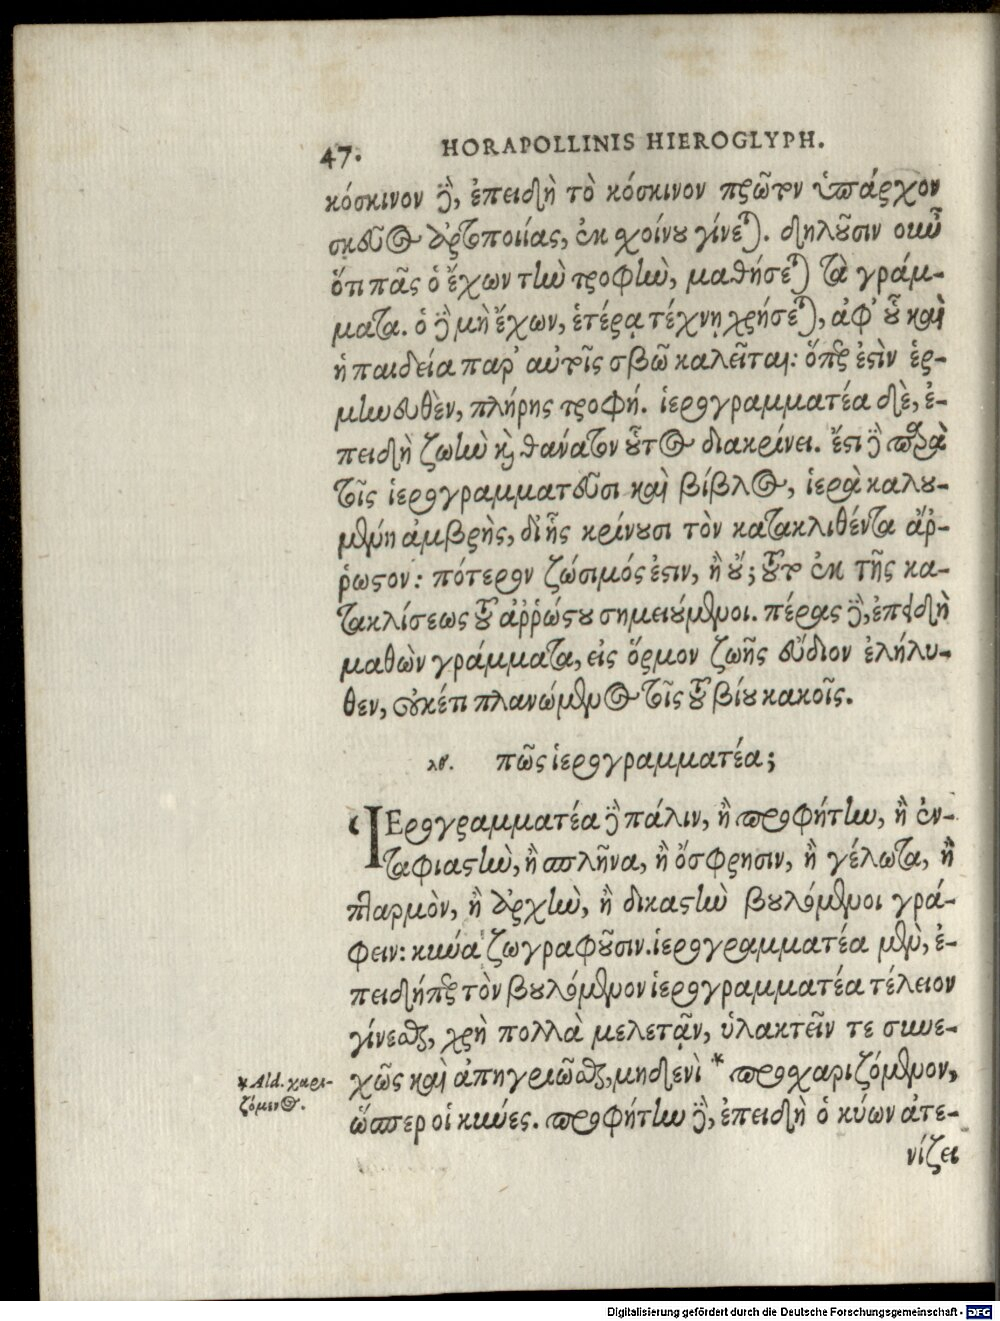 47. HORAPOLLINIS HIEROGLYPH.
κόσκινον δὲ, ἐπειδὴ τὸ κόσκινον πρῶτον ὑπάρχον
σκεῦος ἀρτοποιίας, ἐκ χοίνου γίνεται. δηλοῦσιν οὖν
ὅτι πᾶς ὁ ἔχων τὴν τροφὴν, μαθήσεται τὰ γράμ-
ματα. ὁ δὲ μὴ ἔχων, ἑτέρᾳ τέχνῃ χρήσεται, ἀφ' οὗ καὶ
ἡ παιδεία παρ' αὐτοῖς σβῶ καλεῖται: ὅπερ ἐστὶν ἑρ-
μηνευθὲν, πλήρης τροφή. ἱερογραμματέα δὲ, ἐ-
πειδὴ ζωὴν καὶ θάνατον οὗτος διακρίνει. ἔστι δὲ παρὰ
τοῖς ἱερογραμματεῦσι καὶ βίβλος, ἱερὰ καλου-
μένη ἀμβρὴς, δι' ἧς κρίνουσι τὸν κατακλιθέντα ἄρ-
ρωστον: πότερον ζώσιμός ἐστιν, ἢ οὔ; τοῦτο ἐκ τῆς κα-
τακλίσεως τοῦ ἀρρώστου σημειούμενοι. πέρας δὲ, ἐπειδὴ
μαθὼν γράμματα, εἰς ὅρμον ζωῆς εὔδιον ἐλήλυ-
θεν, οὐκέτι πλανώμενος τοῖς τοῦ βίου κακοῖς.
λθ. πῶς ἱερογραμματέα;
ἹΕρογραμματέα δὲ πάλιν, ἢ προφήτην, ἢ ἐν-
ταφιαστὴν, ἢ σπλῆνα, ἢ ὄσφρησιν, ἢ γέλωτα, ἢ
πταρμὸν, ἢ ἀρχὴν, ἢ δικαστὴν βουλόμενοι γρά-
φειν: κύνα ζωγραφοῦσιν. ἱερογραμματέα μὲν, ἐ-
πειδήπερ τὸν βουλόμενον ἱερογραμματέα τέλειον
γίνεσθαι, χρὴ πολλὰ μελετᾷν, ὑλακτεῖν τε συνε-
χῶς καὶ ἀπηγριῶσθαι, μηδενὶ * προχαριζόμενον,
ὥσπερ οἱ κύνες. προφήτην δὲ, ἐπειδὴ ὁ κύων ἀτε-
νίζει
* Ald. χαρι-
ζόμενος.
Digitalisierung gefördert durch die Deutsche Forschungsgemeinschaft - DFG